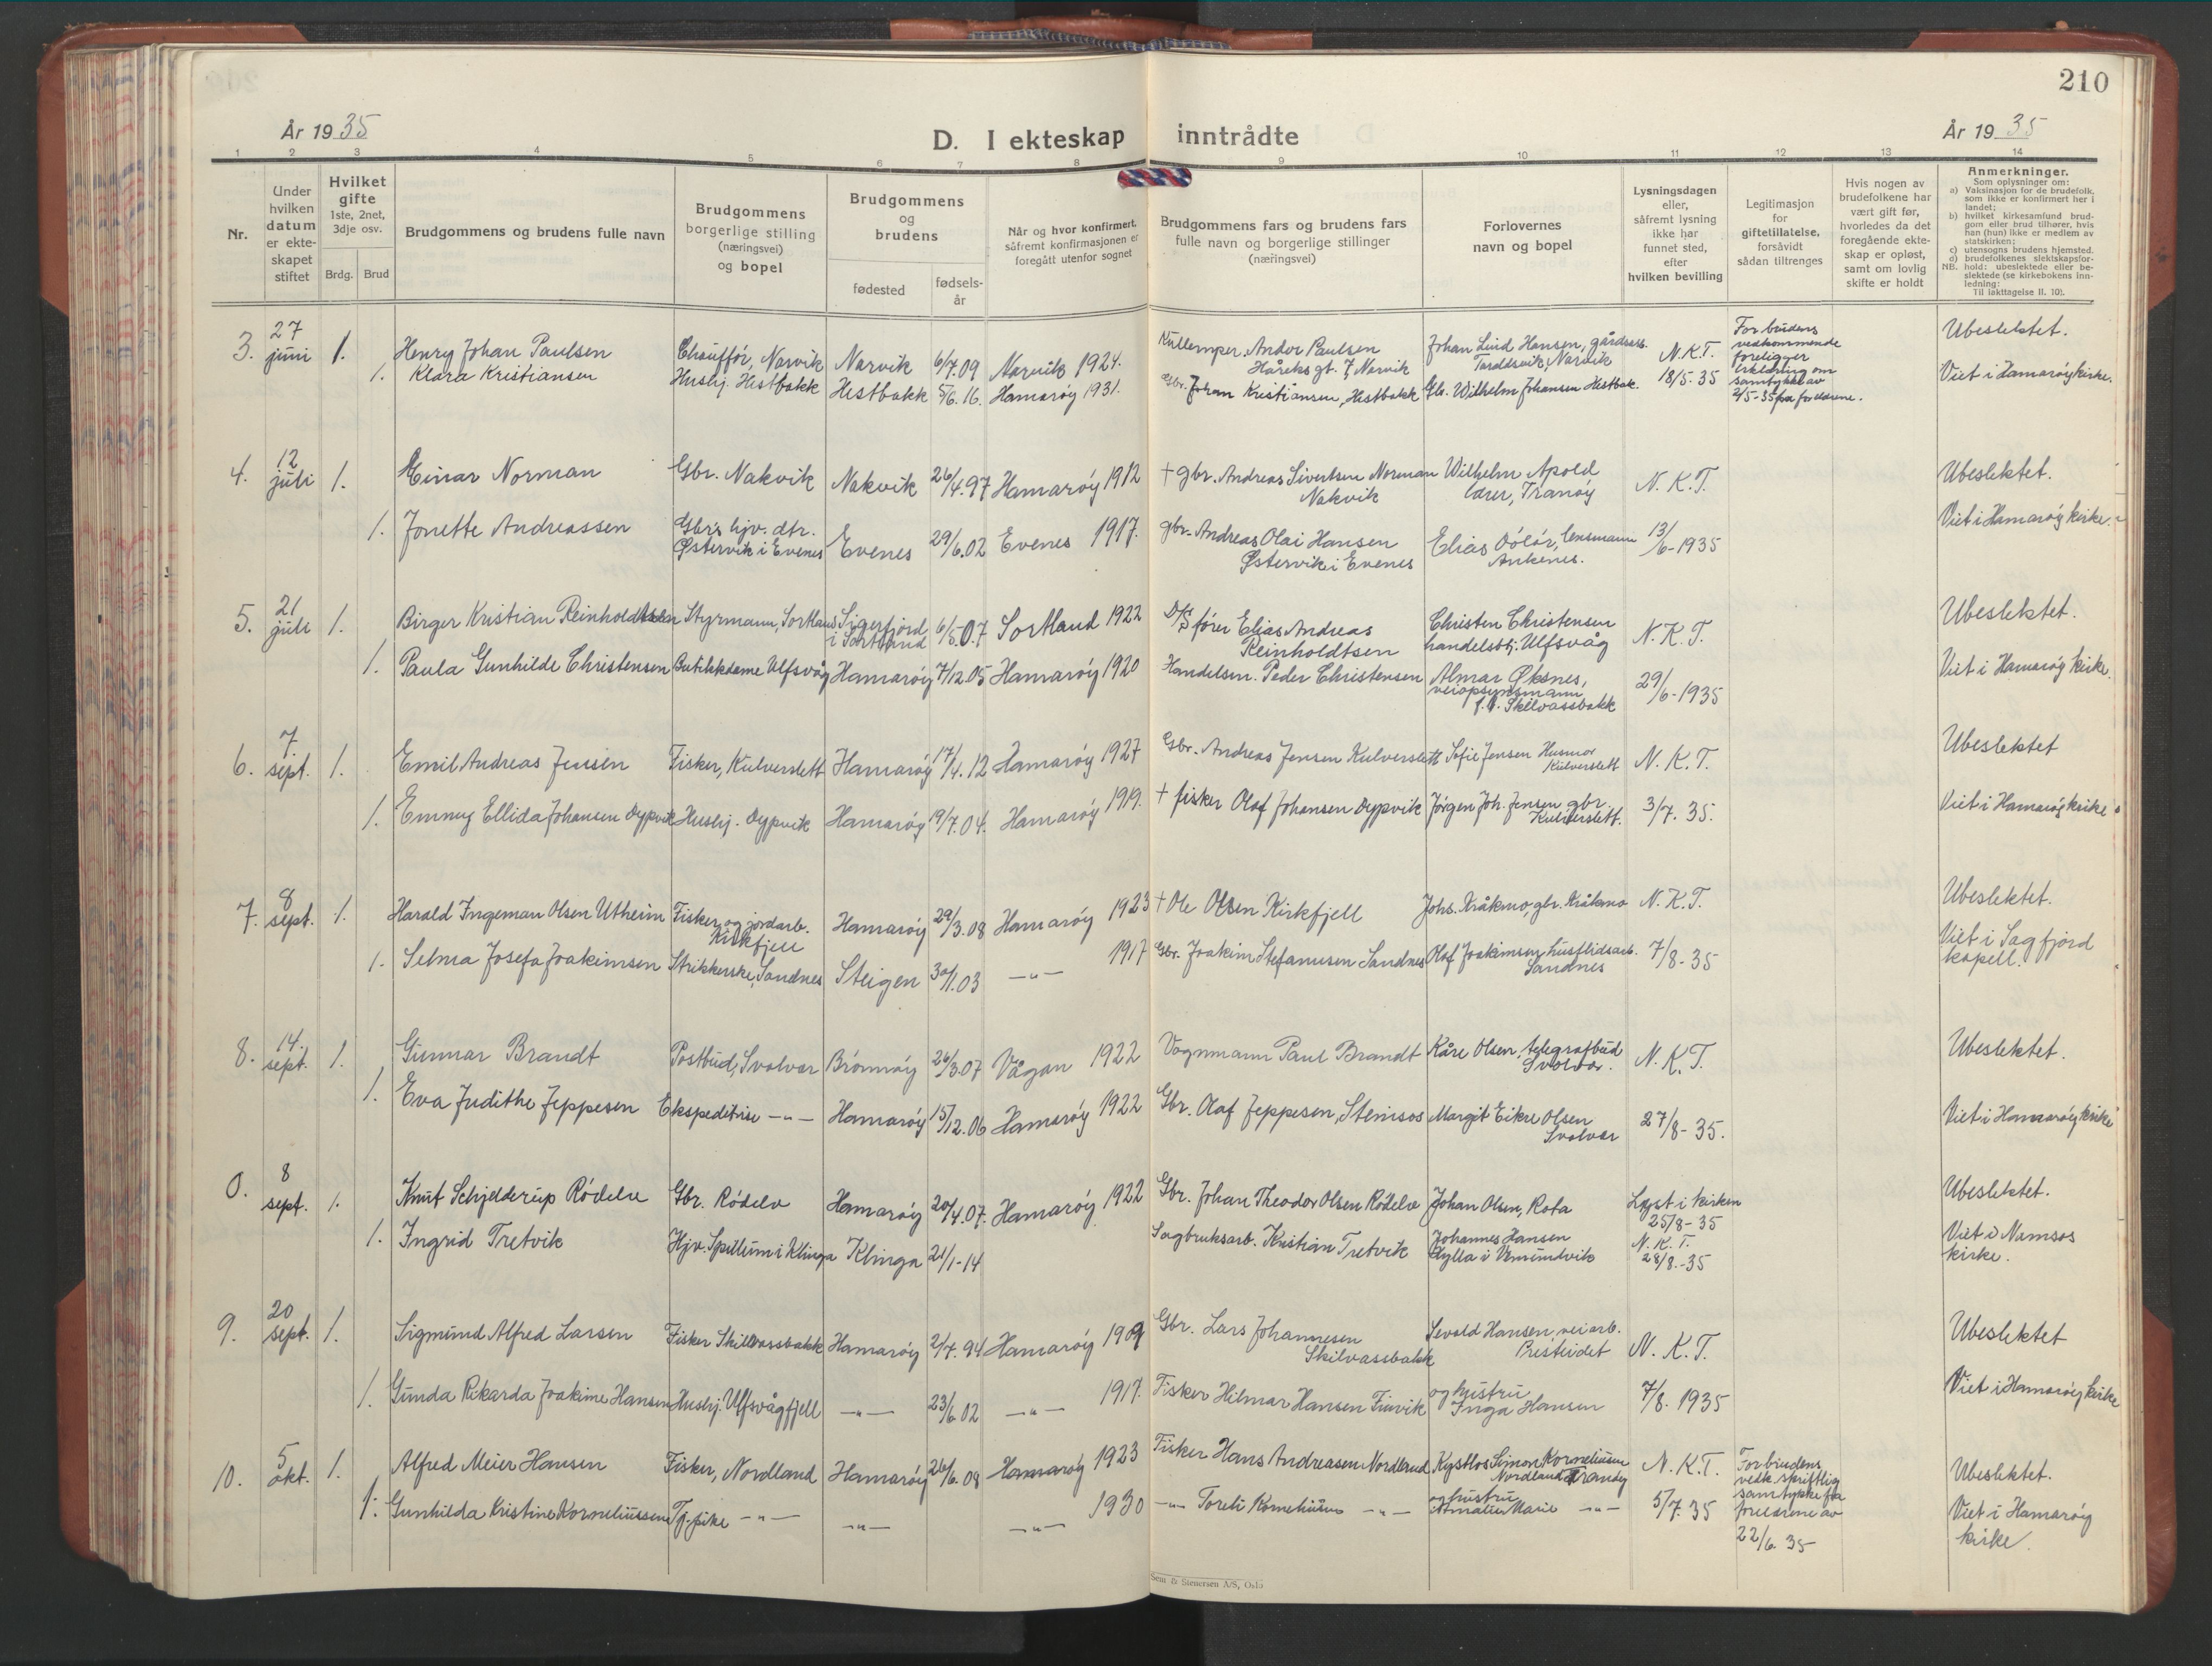 210
År 1935
D. I ekteskap inntrådte
År 1935
1 2 3 4 5 6 7 8 9 10 11 12 13 14
Nr.
Under hvilken datum er ekteskapet stiftet
Hvilket gifte
1ste, 2net, 3dje osv.
Brdg. Brud
Brudgommens og brudens fulle navn
Brudgommens borgerlige stilling (næringsvei) og bopel
Brudgommens og brudens
fødested
fødselsår
Når og hvor konfirmert, såfremt konfirmasjonen er foregått utenfor sognet
Brudgommens fars og brudens fars fulle navn og borgerlige stillinger (næringsvei)
Forlovernes navn og bopel
Lysningsdagen eller, såfremt lysning ikke har funnet sted, efter hvilken bevilling
Legitimasjon for giftetillatelse, forsåvidt sådan tiltrenges
Hvis nogen av brudefolkene har vært gift før, hvorledes da det foregående ekteskap er opløst, samt om lovlig skifte er holdt
Anmerkninger.
Som oplysninger om:
a) Vaksinasjon for de brudefolk, som ikke er konfirmert her i landet;
b) hvilket kirkesamfund brudgom eller brud tilhører, hvis han (hun) ikke er medlem av statskirken;
c) utensogns brudens hjemsted.
d) brudefolkenes slektskapsforhold: ubeslektede eller beslektede (se kirkebokens innledning:
NB.
Til iakttagelse II. 10).
3. 27 juni 1. Henry Johan Paulsen Chauffør, Narvik Narvik 6/7.09 Narvik 1924. Kullemper. Andor Paulsen Håreks gt. 7, Narvik Johan Lind Hansen, gårdsarb. Taraldsvik, Narvik N.K.T. 18/5.35 For brudens vedkommende foreligger erklæring om samtykke av 2/5-35 fra foreldrene. Ubeslektet.
1. Klara Kristiansen Hushj. Hestbakk Hestbakk 5/6.16. Hamarøy 1931. Gbr. Johan Kristiansen, Hestbakk Gbr. Wilhelm Johansen Hestbak. Viet i Hamarøy kirke.
4. 12 juli 1. Einar Norman Gbr. Nakvik Nakvik 26/4.97 Hamarøy 1912 † gbr. Andreas Sivertsen Norman Nakvik Wilhelm Apold lærer, Tranøy N.K.T. Ubeslektet.
1. Jonette Andreassen Gbr's hjv. dtr. Østervik i Evenes Evenes 29/6.02 Evenes 1917. gbr. Andreas Olai Hansen Østervik i Evenes Elias lensmann Ankenes. 13/6-1935 Viet i Hamarøy kirke.
5. 21 juli 1. Birger Kristian Reinholdtsen Styrmann, Sortland Sigerfjord i Sortland 6/5.07 Sortland 1922 D/S fører Elias Andreas Reinholdtsen Christen Christensen handelsbtj. Ulfsvåg N.K.T. Ubeslektet.
1. Paula Gunhilde Christensen Butikkdame Ulfsvåg Hamarøy 7/12.05 Hamarøy 1920 Handelsm. Peder Christensen Almar Øksnes, veiopsynsmann Skilvassbakk 29/6-1935 Viet i Hamarøy kirke.
6. 7. sept. 1. Emil Andreas Jensen Fisker, Kulverslett Hamarøy 17/4.12 Hamarøy 1927 Gbr. Andreas Jensen Kulverslett Sofie Jensen Husmor Kulverslett N.K.T. Ubeslektet
1. Emmy Ellida Johansen Dypvik Hushj. Dypvik Hamarøy 19/7.04. Hamarøy 1919. † fisker Olaf Johansen Dypvik Jørgen Joh. Jensen gbr. Kulverslett. 3/7.35. Viet i Hamarøy kirke
7. 8 sept. 1. Harald Ingeman Olsen Utheim Fisker og jordarb. Kirkfjell Hamarøy 29/3.08 Hamarøy 1923 † Ole Olsen Kirkfjell Johs. Kråkmo, gbr. Kråkmo N.K.T. Ubeslektet.
1. Selma Josefa Joakimsen Strikkerske, Sandnes Steigen 30/1.03 -"- 1917 Gbr. Joakim Stefanusen Sandnes Olaf Joakimsen, husflidsarb. Sandnes 7/8-35 Viet i Sagfjord kapell.
8. 14. sept. 1. Gunnar Brandt Postbud, Svolvær Brønnøy 26/3.07 Vågan 1922 Vognmann Paul Brandt Kåre Olsen, telegrafbud Svolvær. N.K.T. Ubeslektet.
1. Eva Judithe Jeppesen Ekspeditrise -"- Hamarøy 15/12.06 Hamarøy 1922 Gbr. Olaf Jeppesen, Stemsos Margit Eikre Olsen Svolvær 27/8-35. Viet i Hamarøy kirke
0. 8 sept. 1. Knut Schjelderup Rødelv Gbr. Rødelv Hamarøy 20/4.07. Hamarøy 1922 Gbr. Johan Theodor Olsen Rødelv Johan Olsen, Rota Lyst i kirken 25/8-35 Ubeslektet.
1. Ingrid Tretvik Hjv. Spillum i Klinga Klinga 21/1-14 Sagbruksarb. Kristian Tretvik Johannes Hansen Hylla i Vemundvik N.K.T. 28/8-35 Viet i Namsos kirke.
9. 20 sept. 1. Sigmund Alfred Larsen Fisker Skilvassbakk Hamarøy 2/7.94 Hamarøy 1909 Gbr. Lars Johannesen Skilvassbakk Sevald Hansen, veiarb. Presteidet N.K.T. Ubeslektet
1. Gunda Rikarda Joakime Hansen Hushj. Ulfsvågfjell -"- 23/6.02 -"- 1917. Fisker Hilmar Hansen Finvik og hustru Inga Hansen 7/8.1935 Viet i Hamarøy kirke
10. 5 okt. 1. Alfred Meier Hansen Fisker, Nordland Hamarøy 26/6.08 Hamarøy 1923 Fisker Hans Andreasen Nordland Kystlos Simon Korneliussen Nordland, Tranøy N.K.T. For brudens vedk. skriftlig samtykke fra foreldrene av 22/6.35 Ubeslektet.
1. Gunhilda Kristine Korneliussen Tj.pike -"- -"- -"- 1930 -"- Toreli Korneliussen -"- og hustru Amalie Marie -"- 5/7.35 Viet i Hamarøy kirke.
Sem & Stenersen A/S, Oslo